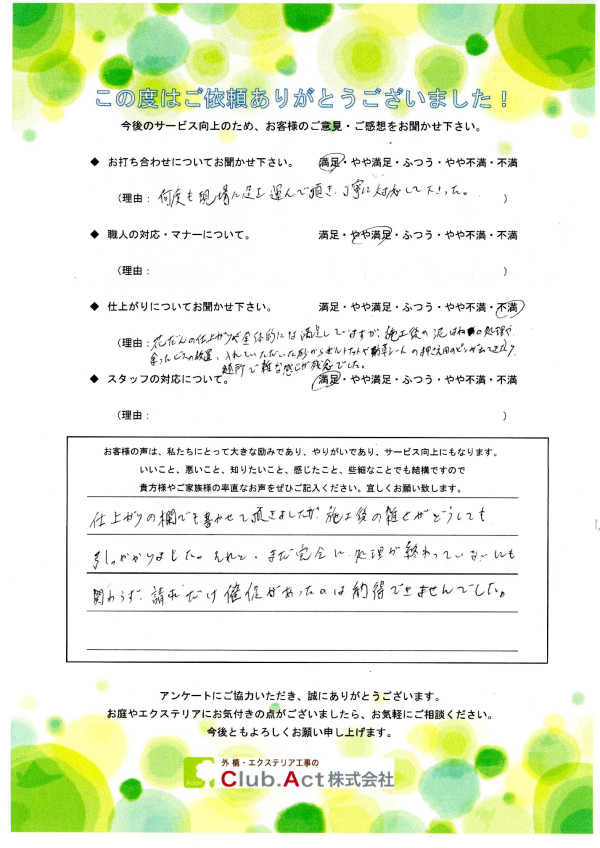 この度はご依頼ありがとうございました！
今後のサービス向上のため、お客様のご意見・ご感想をお聞かせ下さい。
◆ お打ち合わせについてお聞かせ下さい。 満足・やや満足・ふつう・やや不満・不満
（理由： 何度も現場に足を運んで頂き、丁寧に対応して下さった。 ）
◆ 職人の対応・マナーについて。 満足・やや満足・ふつう・やや不満・不満
（理由： ）
◆ 仕上がりについてお聞かせ下さい。 満足・やや満足・ふつう・やや不満・不満
（理由： 花だんの仕上りが全体的には満足していますが、施工後の泥はねの処理や、
余ったビスの放置、入れていただいた砂からボルトナットや防草シートの押さえ用のピンが出てきたり
随所で雑な感じが残念でした。
◆ スタッフの対応について。 満足・やや満足・ふつう・やや不満・不満
（理由： ）
お客様の声は、私たちにとって大きな励みであり、やりがいであり、サービス向上にもなります。
いいこと、悪いこと、知りたいこと、感じたこと、些細なことでも結構ですので
貴方様やご家族様の率直なお声をぜひご記入ください。宜しくお願い致します。
仕上がりの欄でも書かせて頂きましたが、施工後の雑さがどうしても
引っかかりました。それと、まだ完全に処理が終わっていないにも
関わらず、請求だけ催促があったのは納得できませんでした。
アンケートにご協力いただき、誠にありがとうございます。
お庭やエクステリアにお気付きの点がございましたら、お気軽にご相談ください。
今後ともよろしくお願い申し上げます。
外構・エクステリア工事の
Club.Act株式会社